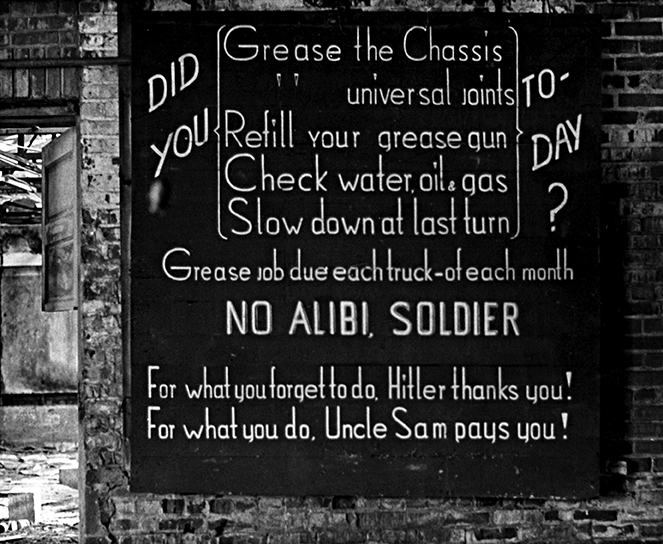 DID YOU
Grease the Chassis
" universal joints
Refill your grease gun
Check water, oil & gas
Slow down at last turn
TO-DAY ?
Grease job due each truck-of each month
NO ALIBI, SOLDIER
For what you forget to do, Hitler thanks you!
For what you do, Uncle Sam pays you!